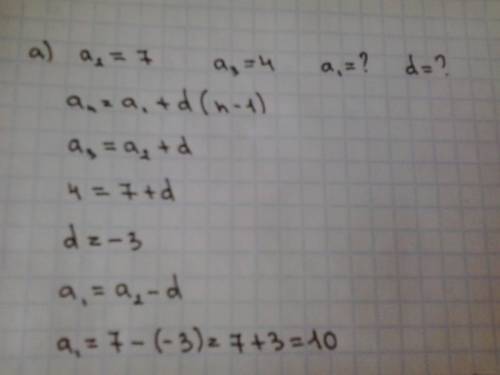 а) a₂ = 7 a₃ = 4 a₁ = ? d = ?
aₙ = a₁ + d (n - 1)
a₃ = a₂ + d
4 = 7 + d
d = -3
a₁ = a₂ - d
a₁ = 7 - (-3) = 7 + 3 = 10